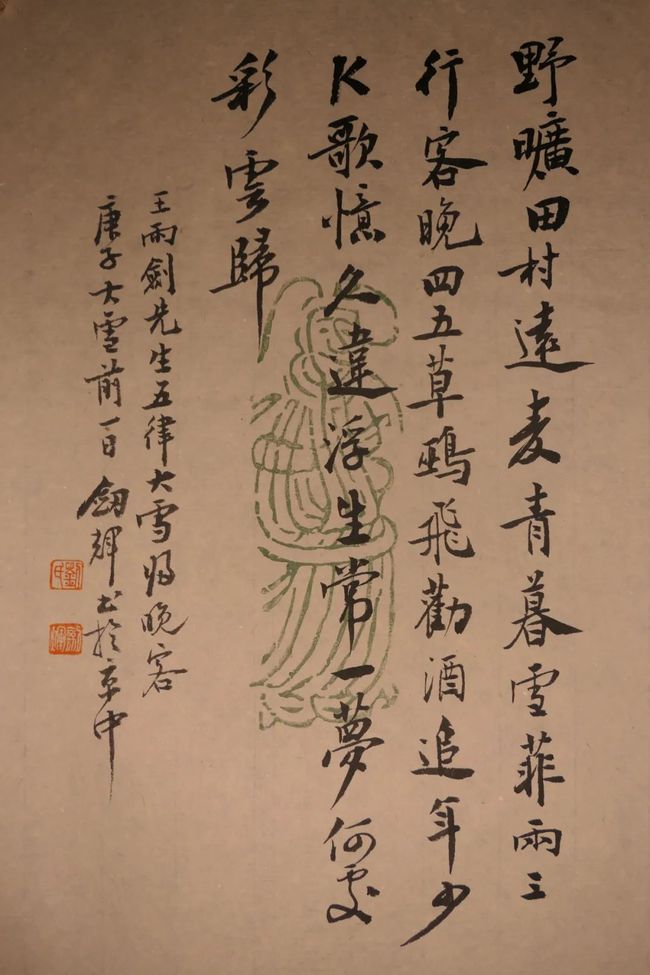 野曠田村遠麦青暮雪菲兩三
行客晚四五草鵶飛勸酒追年少
K歌憶久違浮生常一夢何處
彩雲歸
王雨劍先生五律大雪归晚客
庚子大雪前一日劍輝书於京中